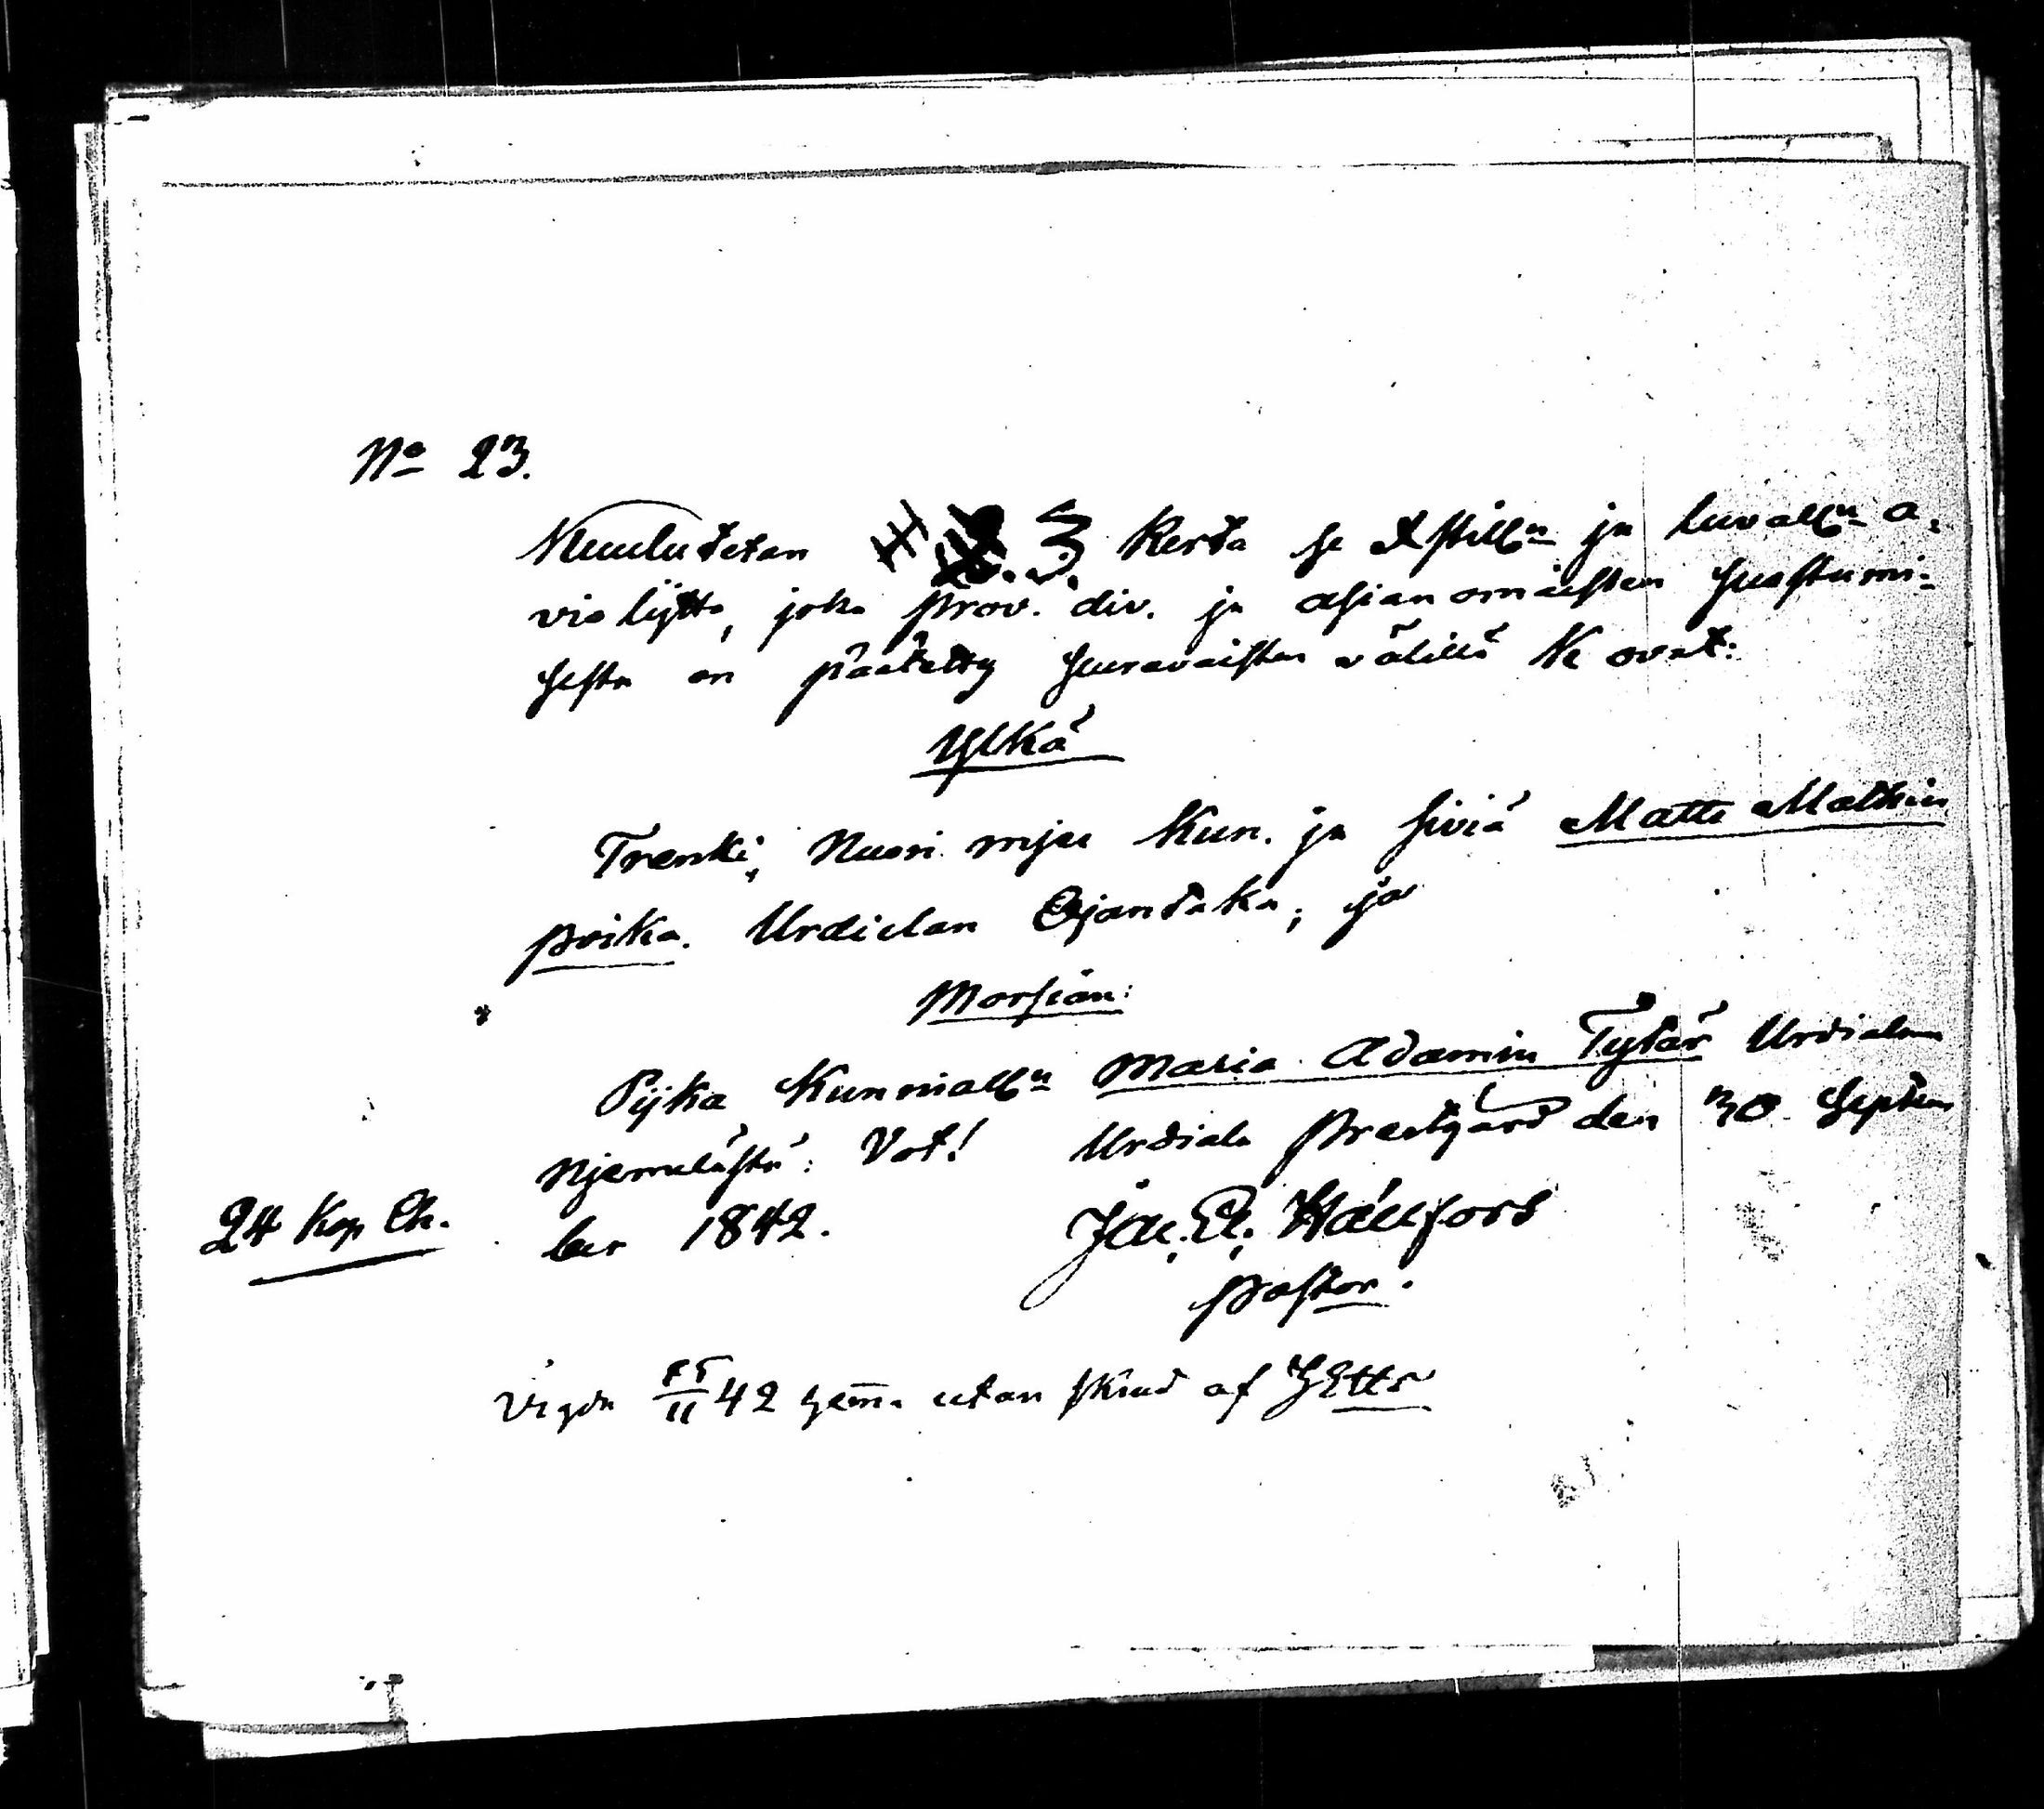 No 23.
Kuulutetan 3. Kerta se Xstilln ja luvalln a,
violijtto, joka prov. div. ja asianomaisten suostumi-
sesta on päätetty seuravaisten välillä Ne ovat:
Ylkä
Trenki, Nuori mjes Kun. ja siviä Matts Mathin
poika. Urdialan Ojantaka; ja
Morsian:
Pijka Kunnialln Maria Adamin Tytär Urdialan
Njemeldstä: Vot! Urdiala Prestgård den 30 Septem
ber 1842. Jac. Ol. Hällfors
24 Kop Ch.
pastor.
Vigde 42 hema utan skrud af